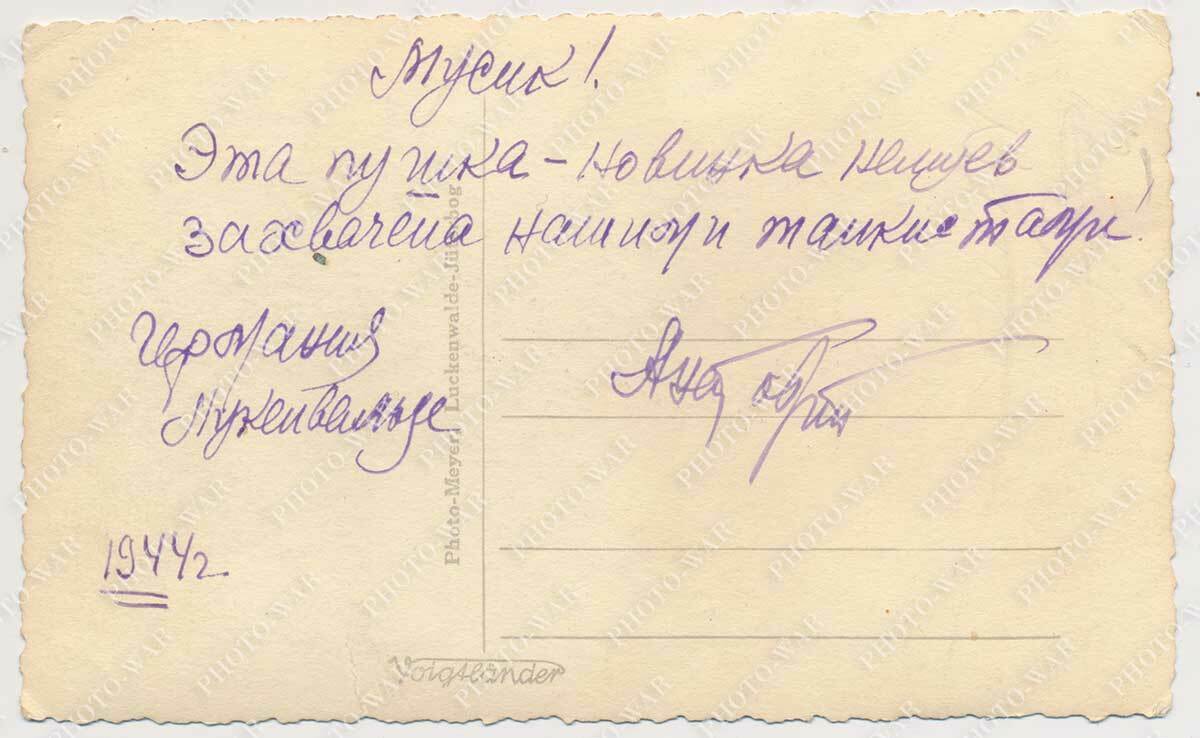 Мусик!
Эта пушка – новинка немцев
захвачена нашими танкистами!
Германия
Лукенвальде
1944 г.
Photo-Meyer, Luckenwalde-Jüterbog
Voigtländer
PHOTO-WAR